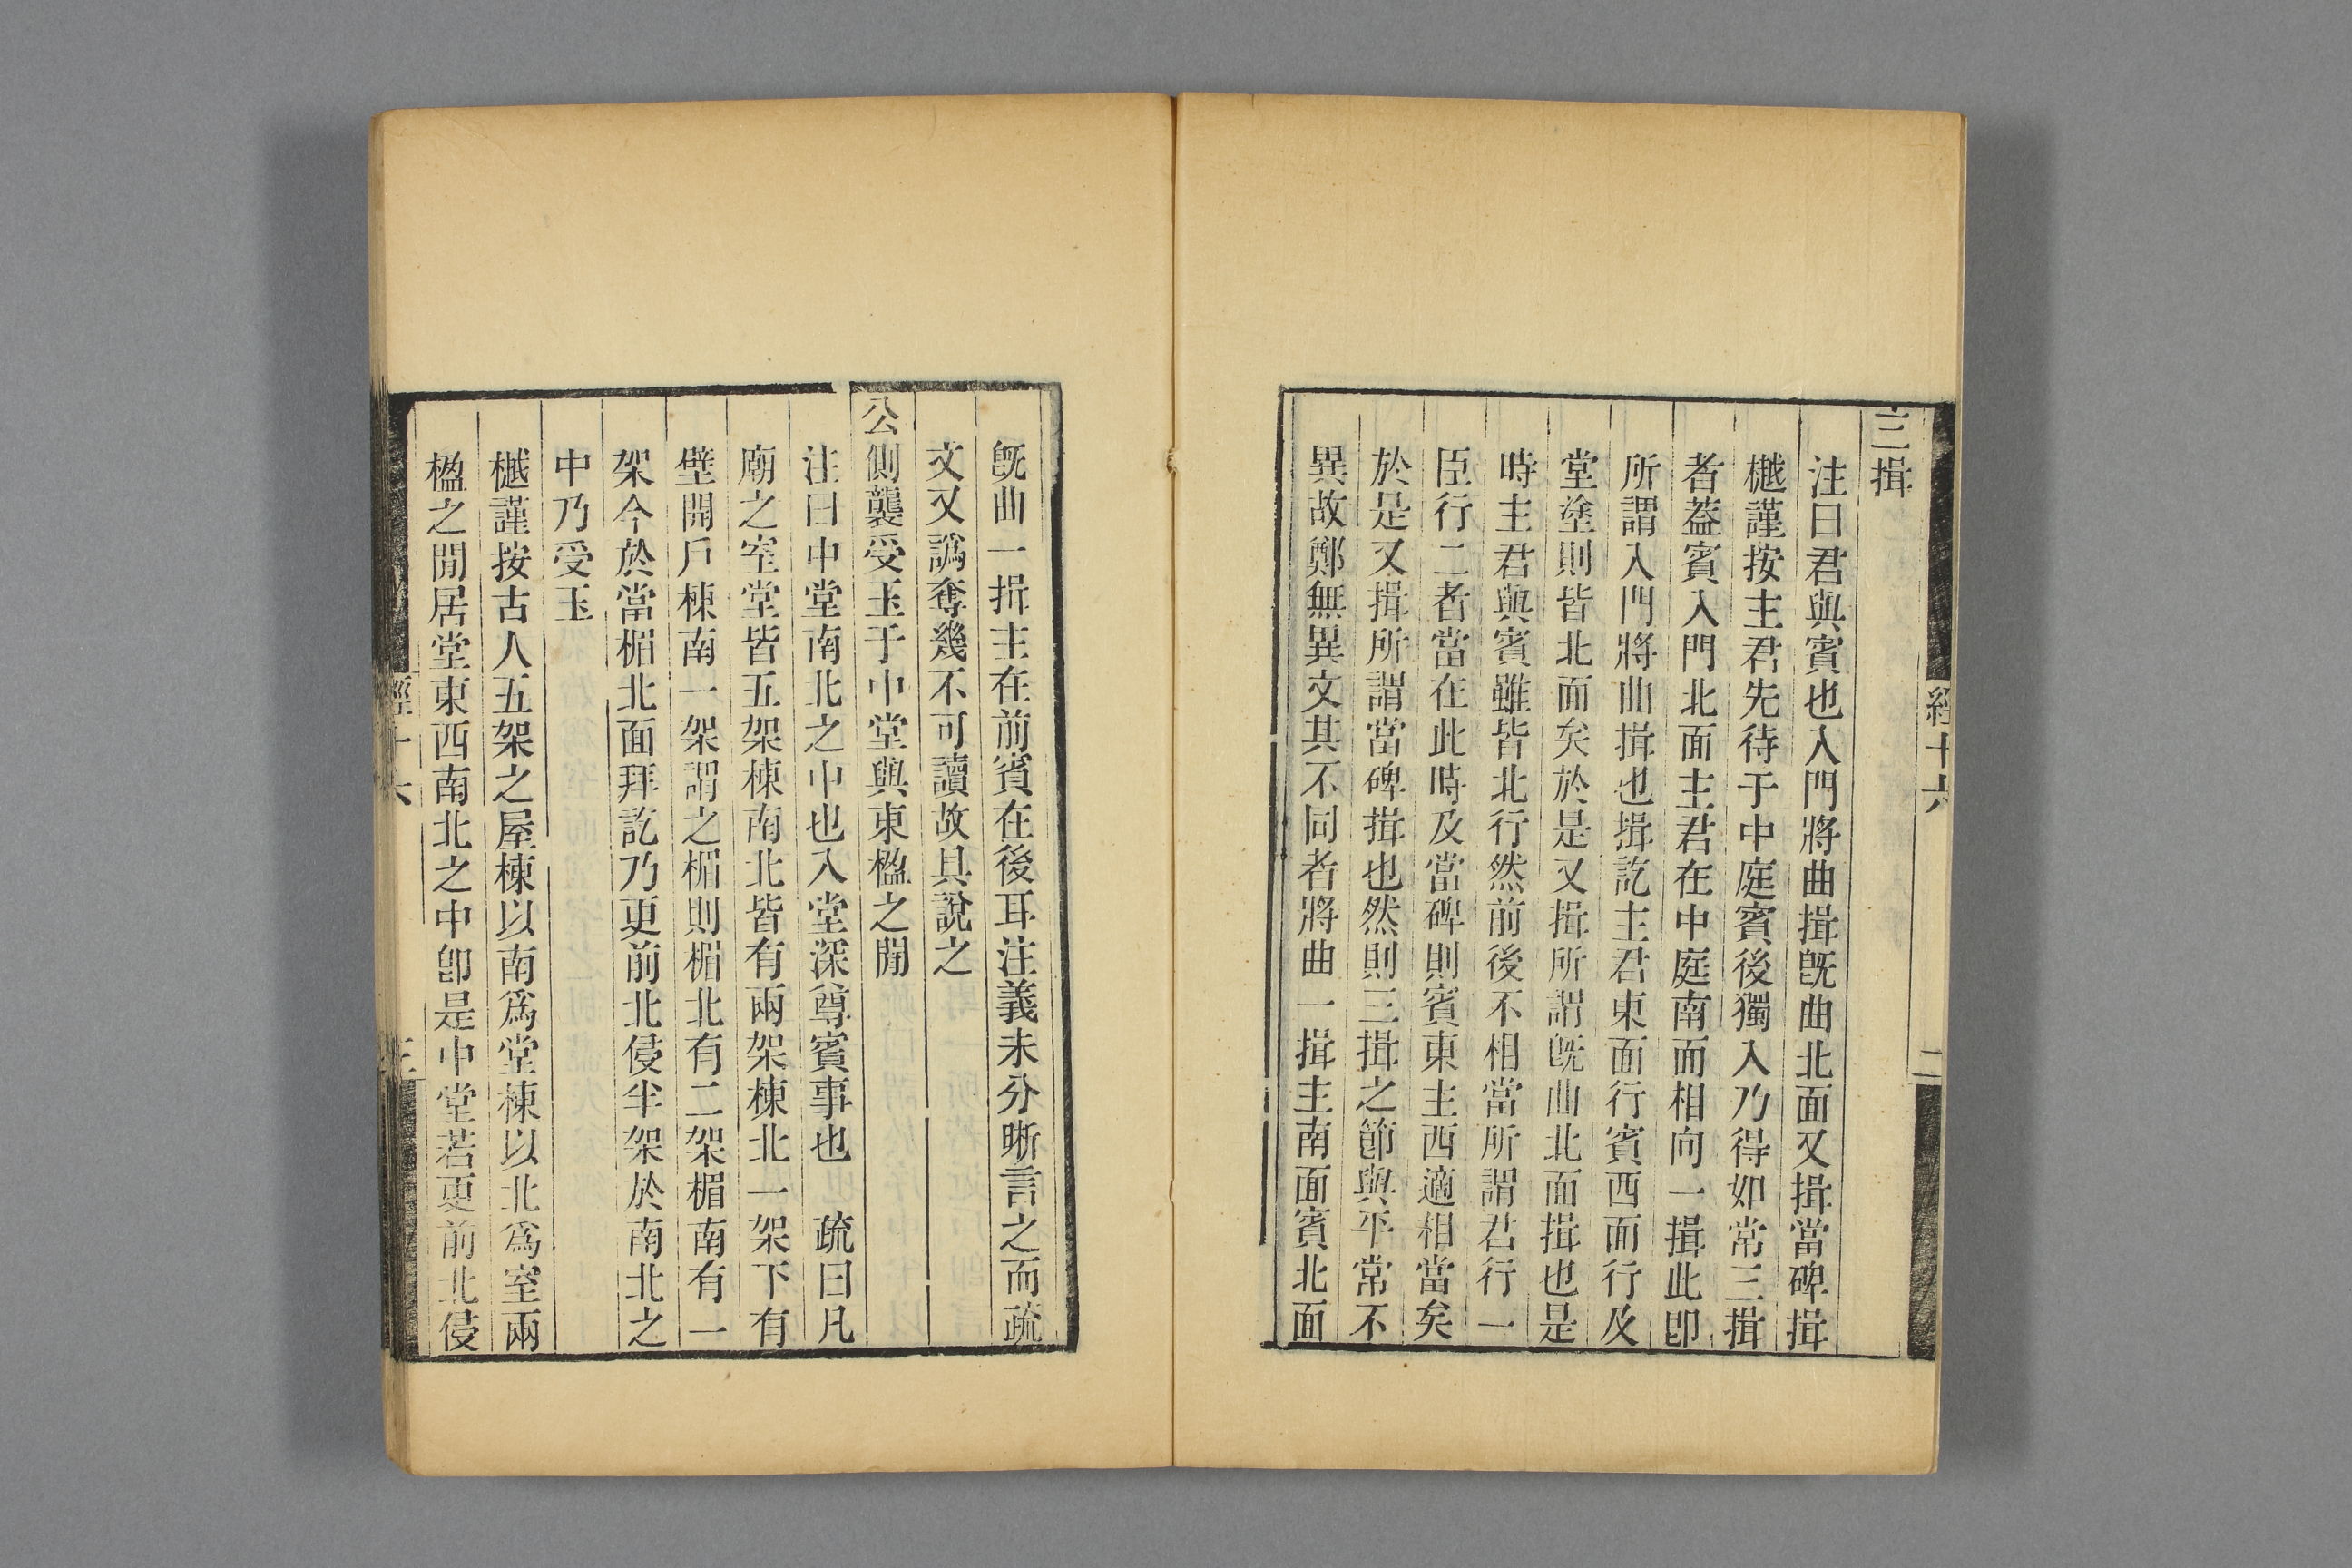 三揖
注曰君與賓也入門將曲揖旣曲北面又揖當碑揖
樾謹按主君先待于中庭賓後獨入乃得如常三揖
者葢賓入門北面主君在中庭南面相向一揖此卽
所謂入門將曲揖也揖訖主君東面行賓西面行及
堂塗則皆北面矣於是又揖所謂旣曲北面揖也是
時主君與賓雖皆北行然前後不相當所謂君行一
臣行二者當在此時及當碑則賓東主西適相當矣
於是又揖所謂當碑揖也然則三揖之節與平常不
異故鄭無異文其不同者將曲一揖主南面賓北面
經十六
二
旣曲一揖主在前賓在後耳注義未分晰言之而疏
文又譌奪幾不可讀故具說之
公側襲受玉于中堂與東楹之閒
注曰中堂南北之中也入堂深尊賓事也 疏曰凡
廟之室堂皆五架棟南北皆有兩架棟北一架下有
壁開戶棟南一架謂之楣則楣北有二架楣南有一
架今於當楣北面拜訖乃更前北侵半架於南北之
中乃受玉
樾謹按古人五架之屋棟以南爲堂棟以北爲室兩
楹之閒居堂東西南北之中卽是中堂若更前北侵
經十六
三